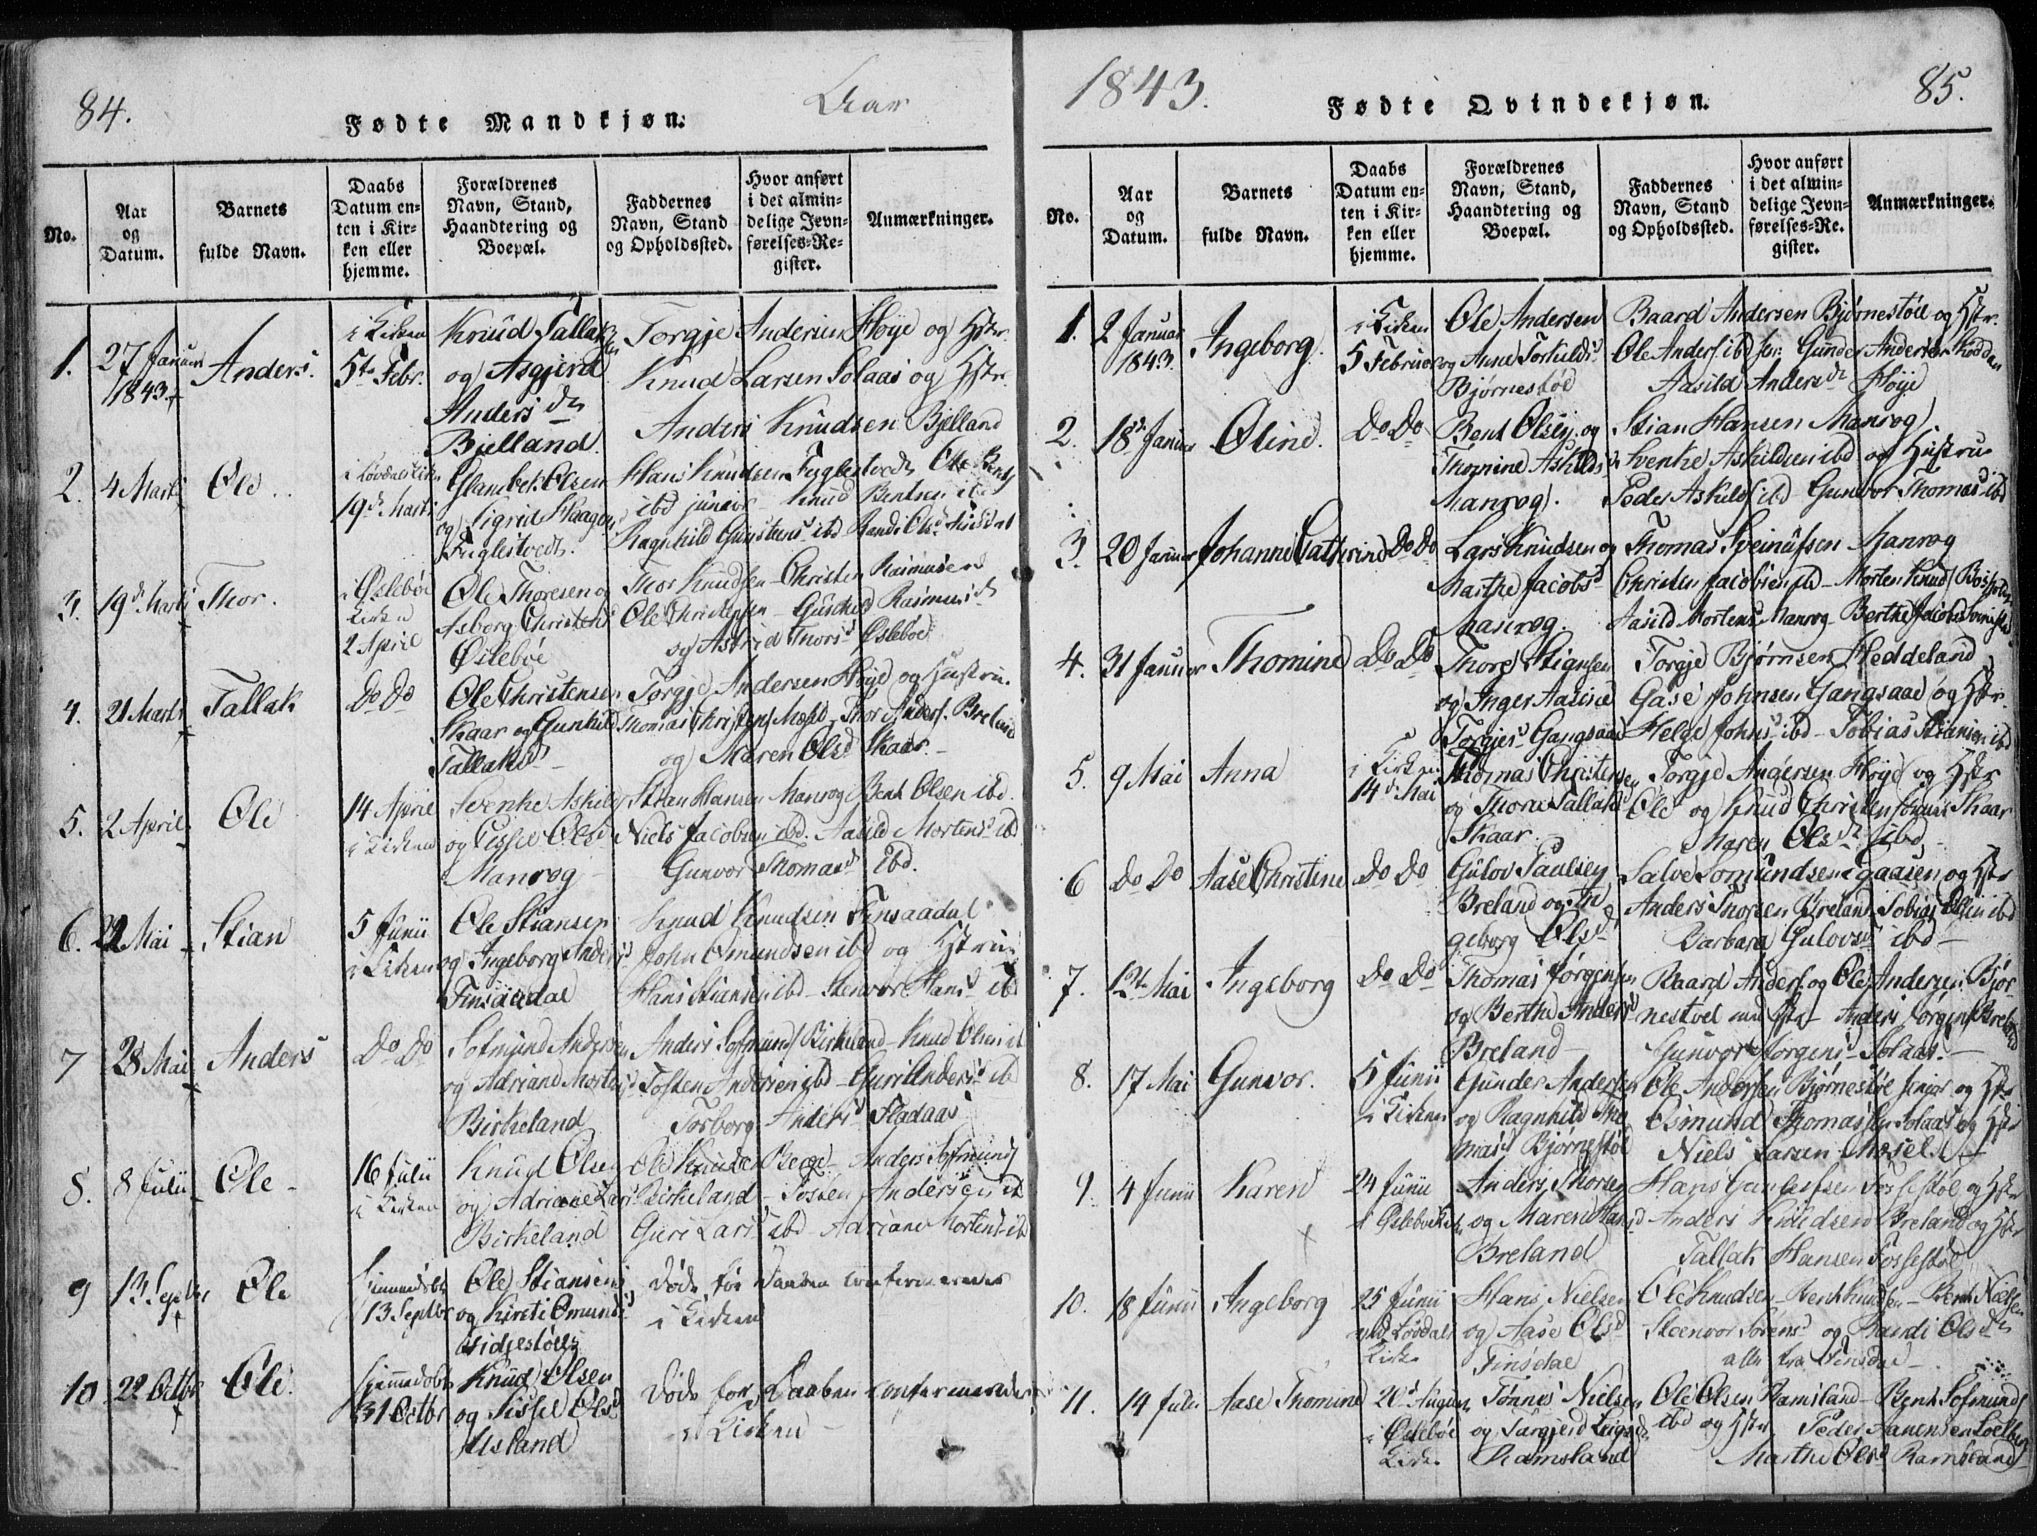 84.
Aar
Fødte Mandkjøn.
No.
Aar
og
Datum.
Barnets
fulde Navn.
Daabs
Datum en-
ten i Kir-
ken eller
hjemme.
Forældrenes
Navn, Stand,
Haandtering og
Boepæl.
Faddernes
Navn, Stand
og Opholdssted.
Hvor anført
i det almin-
delige Jevn-
førelses-Re-
gister.
Anmærkninger.
1.
27 Januar
1843
Anders.
i Kirken
5te Febr.
Knud Tallaks
og Asgjerd
Anders dr
Bjelland.
Torgje Andersen Høye og Hstr
Knud Larsen Solaas og Hstr
Anders Knudsen Bjelland
2.
4 Marts
Ole
19d Marts
Olsen
og Sigrid Haagens
Fuglestvedt.
Hans Knudsen Fuglestvedt Ole Bents
ibd junior Knud Bentsen ibd
Ragnhild Gunstens ibd
3.
19d Marts
Thor.
i Øslebøe
Kirke
2 April
Ole Thoresen og
Asborg Christens
Øslebøe
Thor Knudsen Christen Rasmusen
Ole Christensen Rasmus d
og Astrid Thors Øslebøe
4.
21 Marts
Tallak
Do Do
Ole Christensen
Skaar og Gunhild
Tallaksd
Torgje Andersen Høye og Hustru
Thomas Christens Mæsel Thor Anders. Breland
og Maren Olsd Skaar
5.
2 April
Ole
14 April
i Kirken
Svenke Askilds
og Sissel Olsd
Manrøg
Stian Hansen Manrøg Bent Olsen ibd.
Niels Jacobsen ibd. Aasild Mortens ibd
Gunvor Thomas ibd.
6.
22 Mai
Stian
5 Junii
i Kirken
Ole Stiansen
og Ingeborg Anders
Finsaadal
Knud Knudsen Finsaadal
John Osmundsen ibd og Hstru
Hans Stiansen ibd Stenvor Hans ibd
7
28 Mai
Anders
Do Do
Sofmund Andersen
og Adriane Mortens
Birkeland
Anders Sofmunds Birkeland Knud Olsen ibd
Tosten Andersen ibd Guri Anders ibd
Torborg Anders Fladaas
8.
8 Julii
Ole
16 Julii
i Kirken
Knud Olsen
og Adriane Lars
Birkeland
Ole Knuds Berge Anders Sofmunds
Birkeland Tosten Andersen ibd
Guri Lars ibd Adriane Mortens ibd
9
13 Septbr
Ole
hjemmedøbt
13 Septbr
Ole Stiansen
og Kirsti Omunds
døde før Daaben confermeredes
i Kirken
10
22 Octbr
Ole.
hjemmedøbt
31 Octbr
Knud Olsen
og Sissel Olsd
Usland
døde for Daaben confermeredes
i Kirken
1843.
85.
Fødte Qvindekjøn.
No.
Aar
og
Datum.
Barnets
fulde Navn.
Daabs
Datum en-
ten i Kir-
ken eller
hjemme.
Forældrenes
Navn, Stand,
Haandtering og
Boepæl.
Faddernes
Navn, Stand
og Opholdssted.
Hvor anført
i det almin-
delige Jevn-
førelses-Re-
gister.
Anmærkninger.
1.
2 Januar
1843.
Ingeborg.
i Kirken
5 Februar
Ole Andersen
og Anne Torkilds
Bjørnestøl
Baard Andersen Bjørnestøl og Hstr.
Ole Anders. ibd sen. Gunder Andersen Kodda
Aasild Anders dr Høye
2.
18d Januar
Oline.
Do Do
Bent Olsen og
Thomine Askilds
Manrøg.
Stian Hansen Manrøg
Svenke Askildsen ibd og Hustru
Peder Askilds ibd Gunvor Thomas ibd
3.
20 Januar
Johanne Cathrine
Do Do
Lars Knudsen og
Marthe Jacobsd
Manrøg.
Thomas Sveinulfsen Manrøg
Christen Jacobsen ibd Morten Knuds
Aasild Mortens Manrøg Berthe Jacobs
4.
31 Januar
Thomine
Do Do
Thore Stiansen
og Inger Aasine
Torgjes Gangsaae
Torgje Bjørnsen Heddeland
Gase Johnsen Gangsaae og Hstr.
Helge Johns ibd Tobias Stiansen ibd
5.
9 Mai
Anna
i Kirken
14d Mai
Thomas Christensen
og Thora Tallaks
Skaar
Torgje Andersen Høye og Hstr
Ole og Knud Christensønner Skaar
Maren Olsdr ibd
6
Do Do
Aase Christine
Do Do
Gulov Paulsen
Breland og In
geborg Olsd
Salve Somundsen Gaasen og Hstr
Anders Thorsen Breland Tobias Olsen ibd
Barbara Gulovsd ibd
7.
12te Mai
Ingeborg
Do Do
Thomas Jørgensen
og Berthe Anders
Breland
Baard Anders. og Ole Andersen Bjør-
nestøel med Hstr Anders Jørgens Breland
Gunvor Jørgens Solaas.
8.
17 Mai
Gunvor.
5 Junii
i Kirken
Gunder Andersen
og Ragnhild Tho
mas Bjørnestøl
Ole Andersen Bjørnestøl senior og Hstr
Osmund Thomassen Solaas og Hstr
Niels Larsen Mosel.
9.
4 Junii
Karen
24 Junii
i Øslebø Kirke
Anders Thorsen
og Maren Hansd
Breland
Hans Fossestøl og Hstr
Anders Breland og Hstr
Tallak Hansen Fossestøl
10.
18 Junii
Ingeborg
25 Junii
ved Løvdals
Kirke
Hans Nielsen
og Aase Olsd
Finsdal
Ole Knudsen Bent Knudsen Bent Nielsen
Steenvor Sørens og Randi Olsdr
alle fra Finsdal
11.
14 Julii
Aase Thomine
20d August
i Øslebøe
Kirke
Tønnes Nielsen
og Targjerd
Ramsland
Ole Olsen Ramsland Bent Sofmunds
ibd og Hstr Peder Aanensen
Marthe Olsd Ramsland